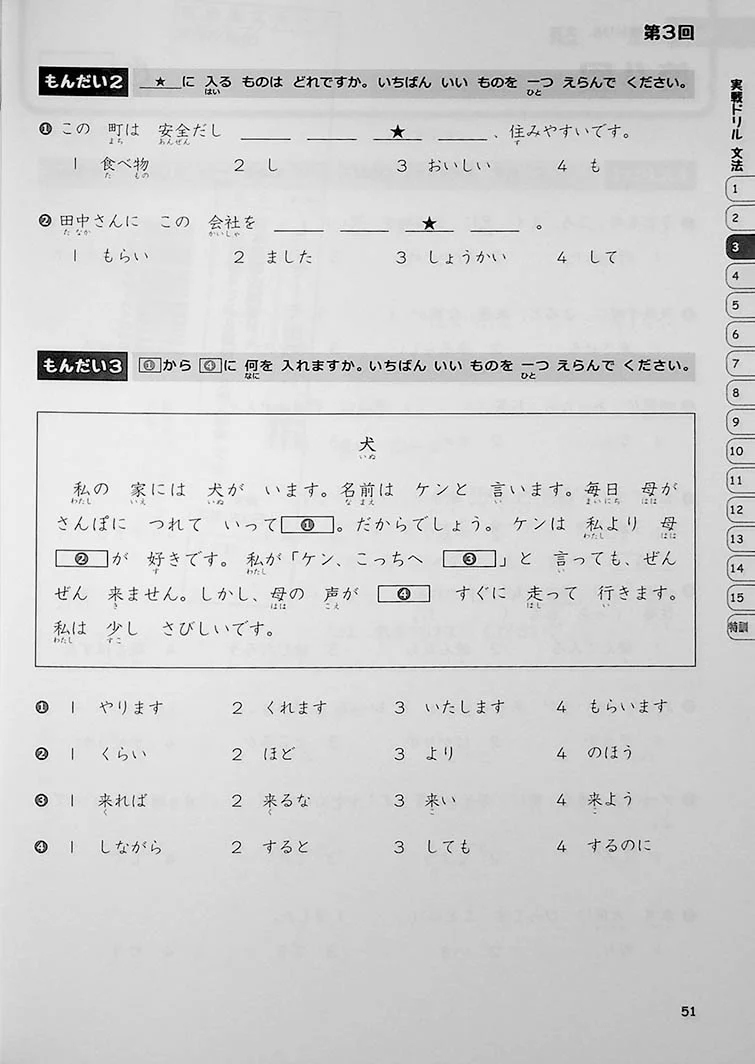 第3回
もんだい2 ★に 入る ものは どれですか。いちばん いい ものを 一つ えらんで ください。
はい ひと
❶ この 町は 安全だし ____ ____ ★ ____ 、住みやすいです。
まち あんぜん す
1 食べ物 2 し 3 おいしい 4 も
た もの
❷ 田中さんに この 会社を ____ ____ ★ ____ 。
た なか かいしゃ
1 もらい 2 ました 3 しょうかい 4 して
もんだい3 ①から ④に 何を 入れますか。いちばん いい ものを 一つ えらんで ください。
なに い ひと
犬
いぬ
私の 家には 犬が います。名前は ケンと 言います。毎日 母が
わたし いえ いぬ な まえ い まいにち はは
さんぽに つれて いって ❶ 。だからでしょう。ケンは 私より 母
わたし はは
❷ が 好きです。私が「ケン、こっちへ ❸ 」と 言っても、ぜん
す わたし い
ぜん 来ません。しかし、母の 声が ❹ すぐに 走って 行きます。
き はは こえ はし い
私は 少し さびしいです。
わたし すこ
❶ 1 やります 2 くれます 3 いたします 4 もらいます
❷ 1 くらい 2 ほど 3 より 4 のほう
❸ 1 来れば 2 来るな 3 来い 4 来よう
く く こ こ
❹ 1 しながら 2 すると 3 しても 4 するのに
実戦ドリル 文法
1
2
3
4
5
6
7
8
9
10
11
12
13
14
15
特訓
51